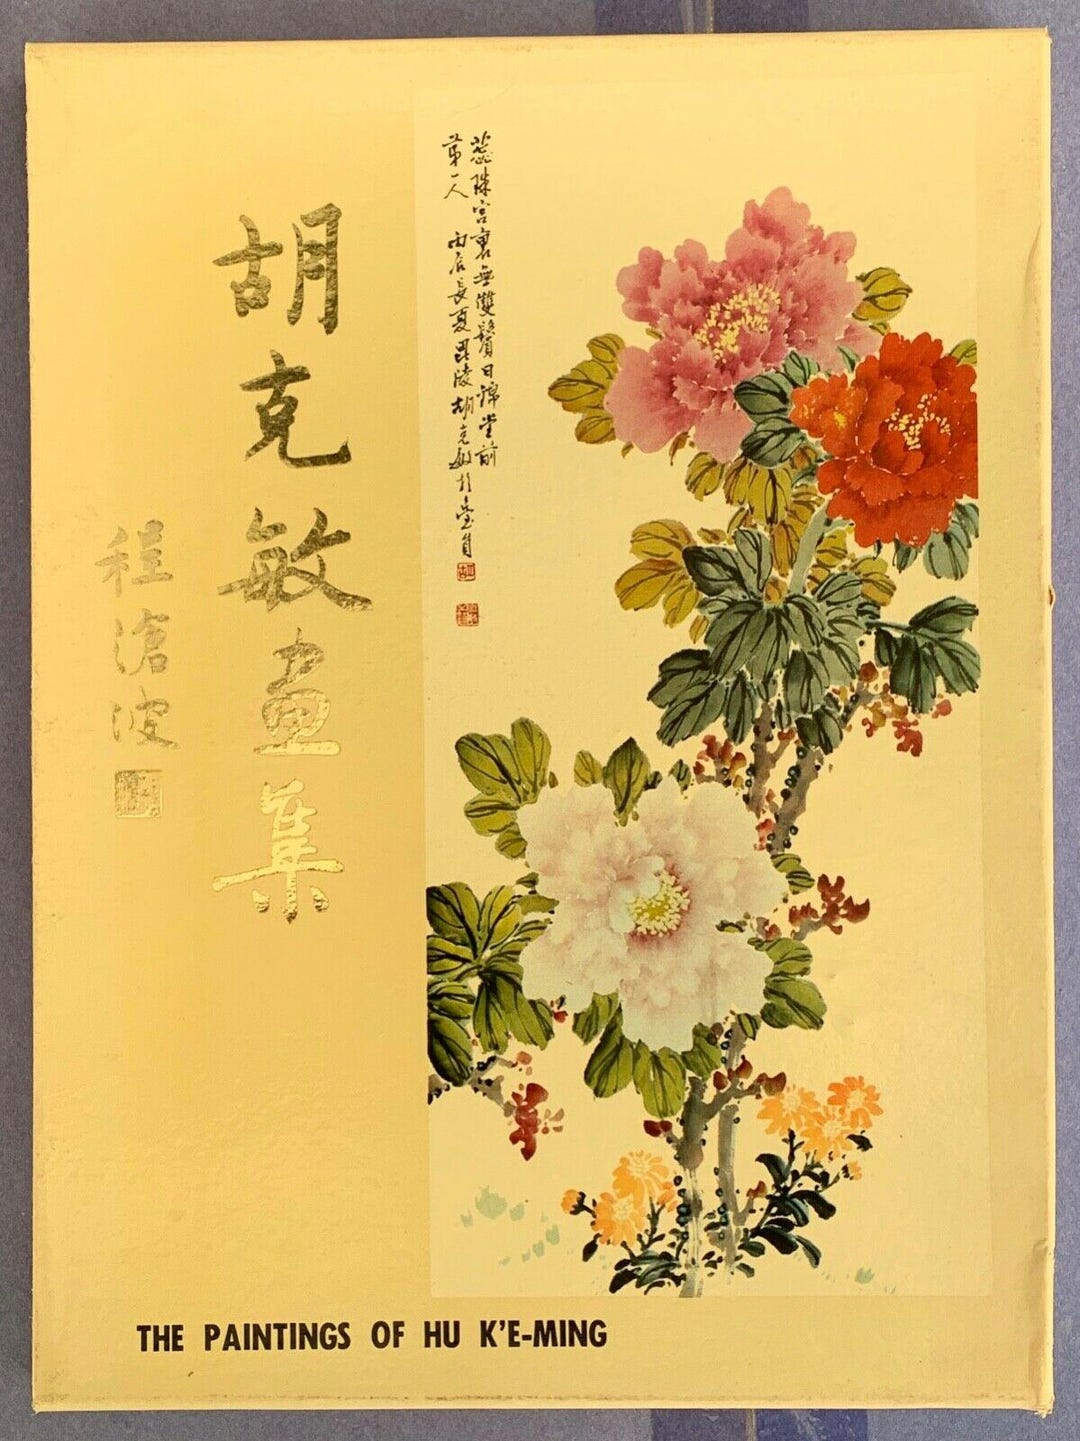 胡克敏畫集
程滄波
蕊珠宮裏無雙鬢日錦堂前
第一人
丙辰長夏毘陵胡克敏於臺員
THE PAINTINGS OF HU K'E-MING